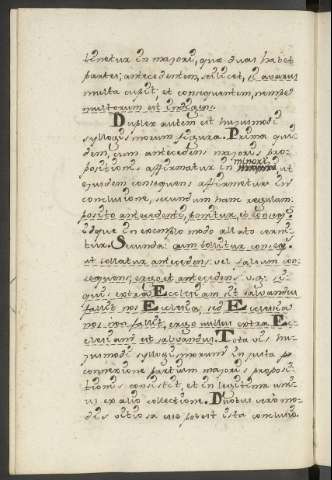 tinetur in majori, quæ duas habet
partes, antecedentem, scilicet, si avarus
multa cupit, et consequentem, nempe
multorum est indigus.
Duplex autem est hujusmodi
syllogismorum figura. Prima qui-
dem, cum antecedens majoris pro-
positionis affirmatur in minori ut
ejusdem consequens affirmetur in
conclusione, secundum hanc regulam:
posito antecedente, ponitur et conseq.
idque in exemplo modo allato cerni-
tur. Secunda: cum tollitur conseq.
ut tollatur antecedens: vel falsum con-
sequens, ergo et antecedens v.g. si
quis extra Ecclesiam sit salvandus
fallit nos Ecclesia, sed Ecclesia
nos non fallit, ergo nullus extra Ec-
clesiam est salvandus. Tota vis hu-
jusmodi syllogismorum in justa
connexione partium majoris proposi-
tionis consistit, et in legitima unius
ex alio collectione. Duobus vero mo-
dis vitiosa esse potest ista conclusio.